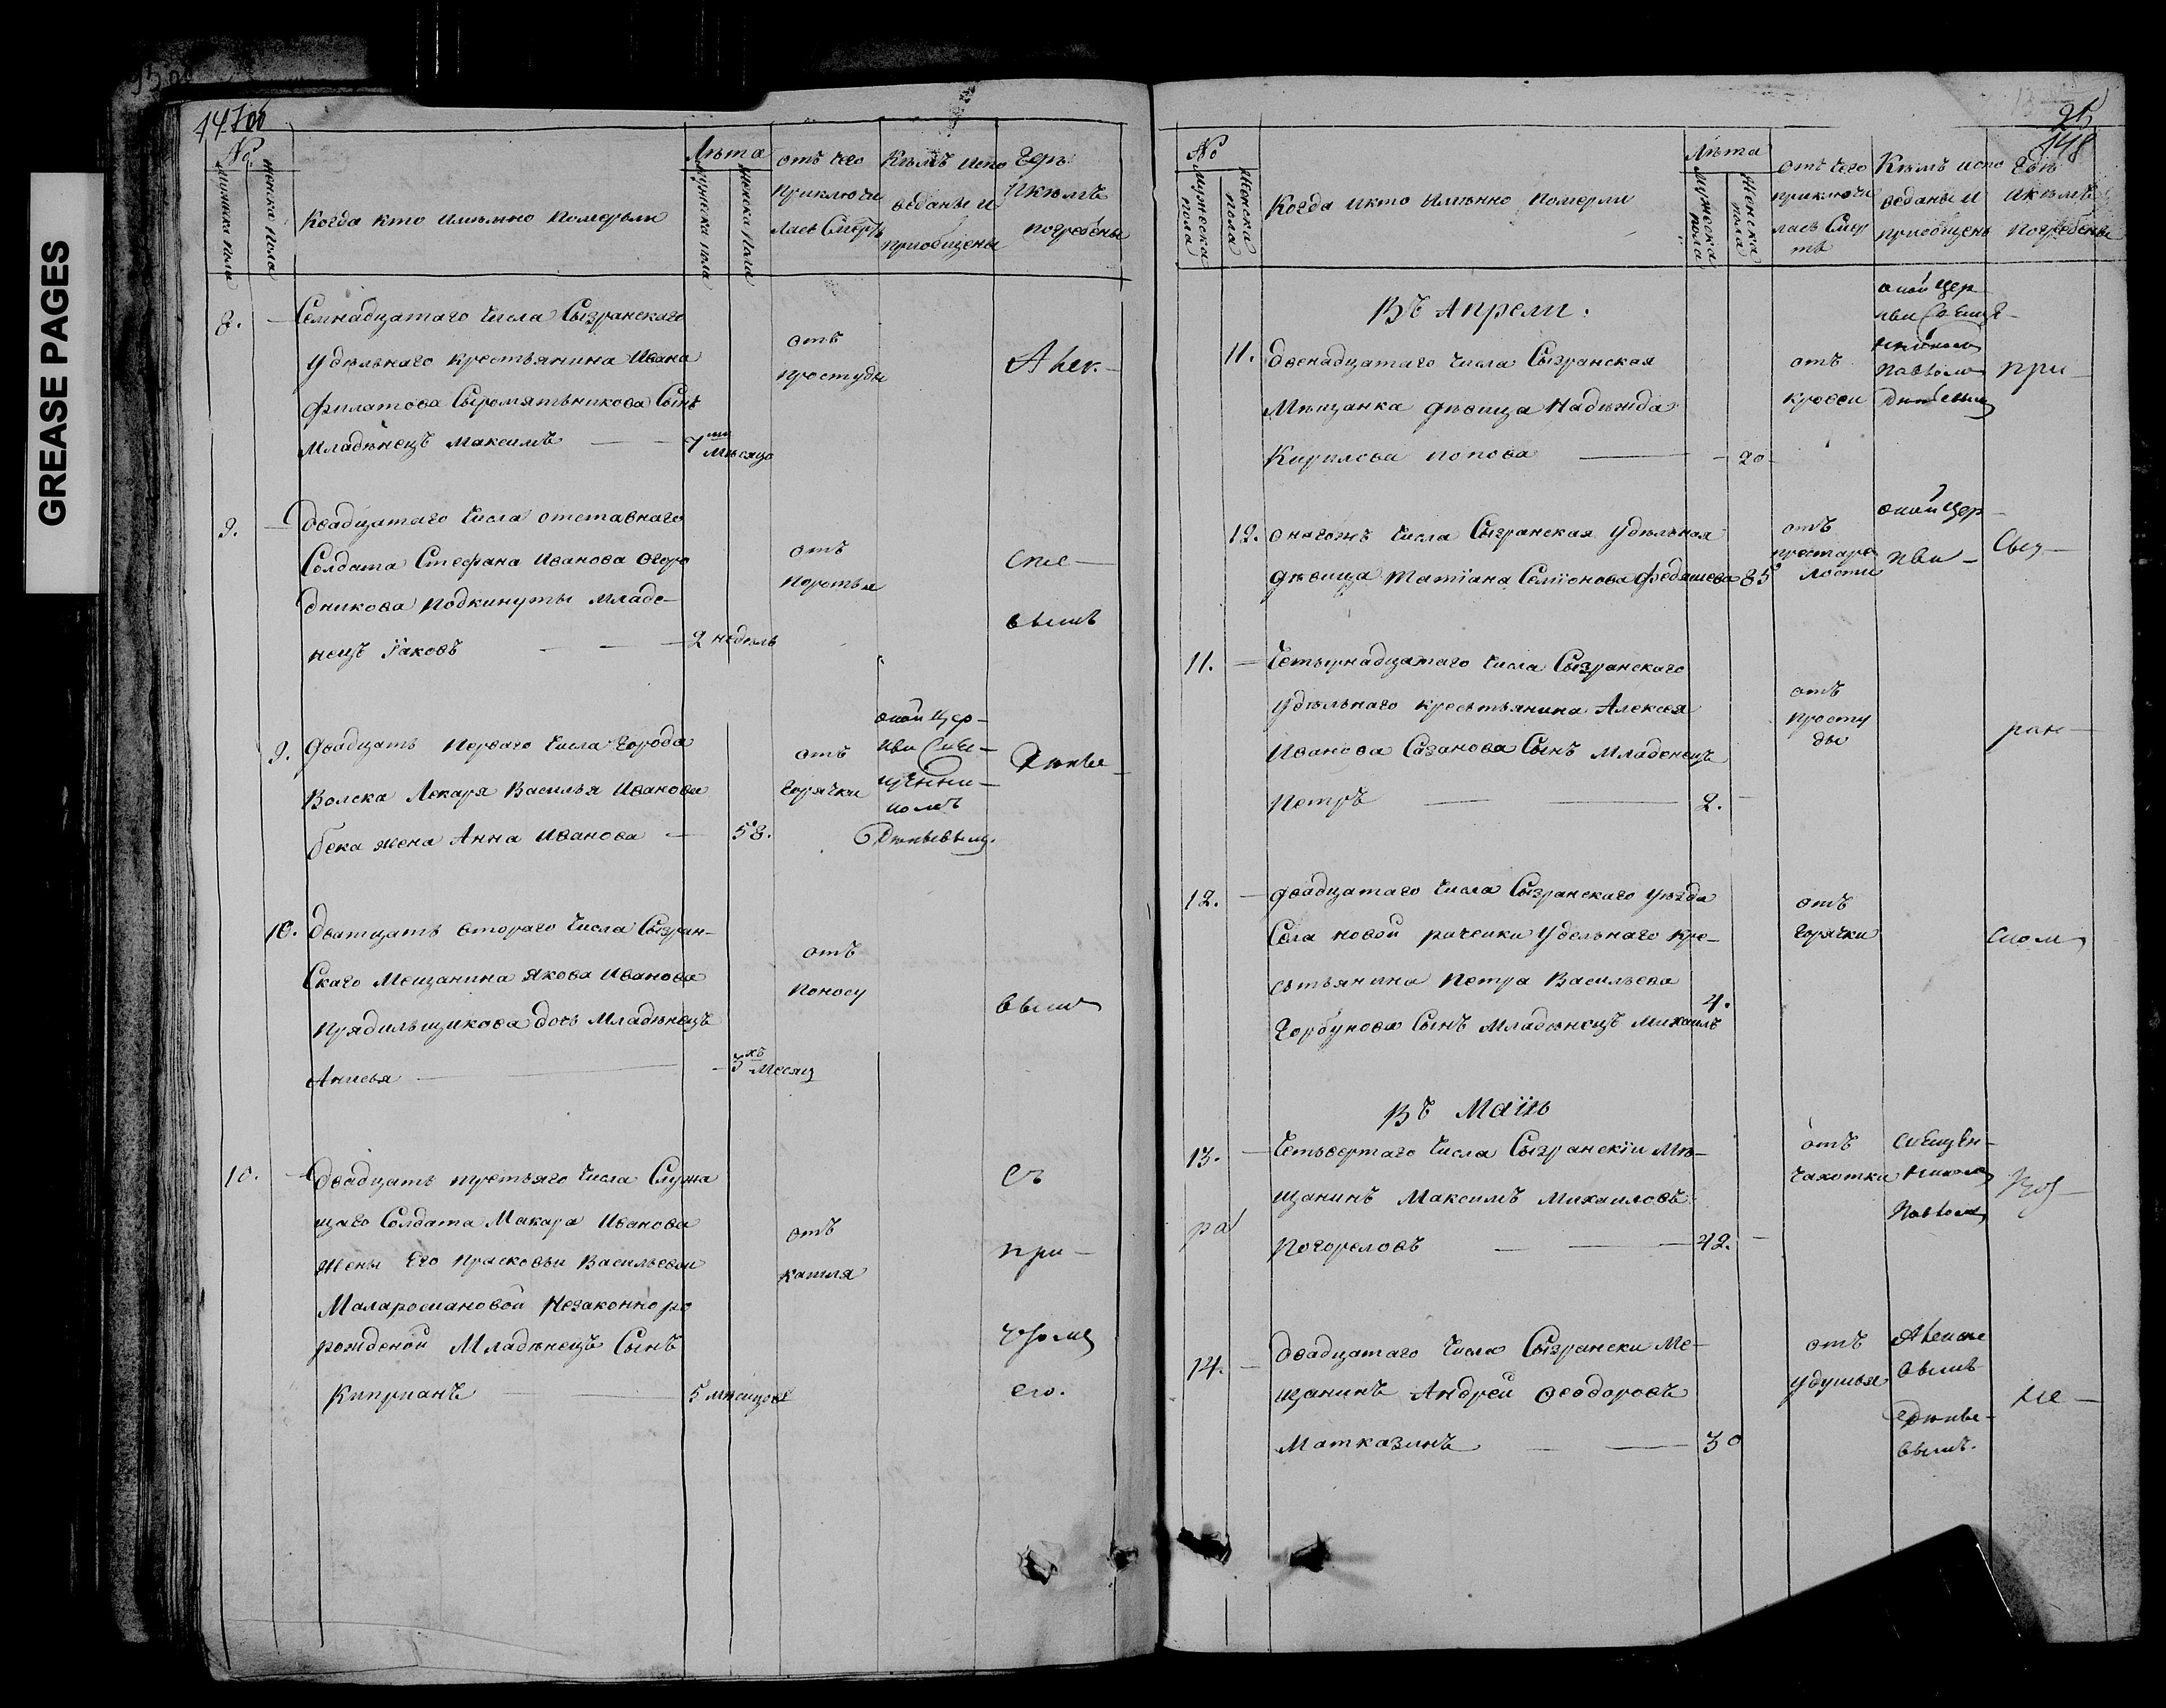 GREASE PAGES
No
мужеска пола
женска пола
Когда кто имянно померъли
Лѣта
мужеска пола
женска пола
отъ чего
приключи
лась Смерть
Кѣмъ испо
веданы и
приобщены
Гдѣ
и кѣмъ
погребены
8. — Семнадцатаго числа Сызранскаго
удѣльнаго крестьянина Ивана
Филатова Сыромятьникова Сынъ
младѣнецъ Максимъ — 7ми мѣсяцо
отъ
простуды
Алек-
9. — двадцатаго числа отставнаго
Солдата Стефана Иванова Огоро
дникова подкинуты младе-
нецъ Іаковъ — 2 недѣль
отъ
поротья
сіе-
вымъ
9. двадцать перваго числа города
Волска Лекаря Василья Иванова
бека жена Анна Иванова — 58.
отъ
горячки
оной цер-
кви Свя-
щенни-
комъ
10. дватцать втораго числа Сызран-
Скаго Мещанина Якова Иванова
Прядильщикова дочь младѣнецъ
Анисья — 3хъ месяц
отъ
поносу
вымъ
10. — двадцать третьяго числа Служа
щаго Солдата Макара Иванова
жены Его Прасковьи Васильевой
Маларомановой Незаконно ро
рожденой Младѣнецъ Сынъ
Киприанъ — 5 мѣсяцовъ
отъ
кашля
съ
при-
чтомъ
его.
25
148
No
мужеска
пола
Женска
пола
Когда икто Имѣнно померли
Лѣта
мужеска
пола
Женска
пола
отъ чего
приключи
лась Смер
ть
Кѣмъ испо
веданы и
приобщены
Гдѣ
и кѣмъ
погребены
Въ Апрели.
11. двенадцатаго числа Сызранская
Мѣщанка дѣвица Надѣжда
Кирилова Попова — 20
отъ
крови
оной цер-
при-
12. онагожъ числа Сызранская удѣльная
дѣвица Татіана Семіонова Федяшева 85
отъ
престаре
лости
оной цер-
кви-
Свя-
11. — Четырнадцатаго числа Сызранскаго
удѣльнаго крестьянина Алексея
Иванова Сазанова Сынъ младенецъ
Петръ — 2.
отъ
просту
ды
12. — двадцатаго числа Сызранскаго уѣзда
Села новой рачейки Удельнаго Кре-
стьянина Петра Васильева
Горбунова Сынъ Младѣнецъ Михаилъ 4.
отъ
горячки
Въ Маіѣ
13. — Четьвертаго числа Сызранскій Мѣ-
щанинъ Максимъ Михаиловъ
Погореловъ — 42.
отъ
чахотки
Священ-
14. — двадцатаго числа Сызрански Ме-
щанинъ Андрей Ѳеодоровъ
Матказинъ — 30
отъ
удушья
Алексіе
вымъ
вымъ.